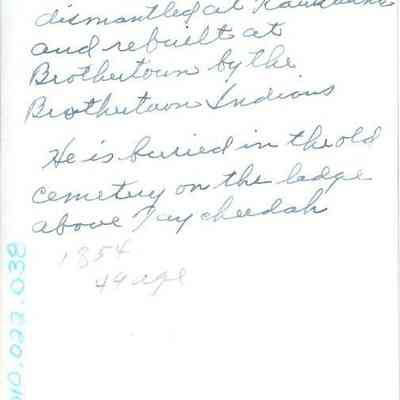 dismantled at
and rebuilt at
Brothertown by the
Brothertown Indians
He is buried in the old
cemetery on the ledge
above Taycheedah
1854
49 age
010.022.038